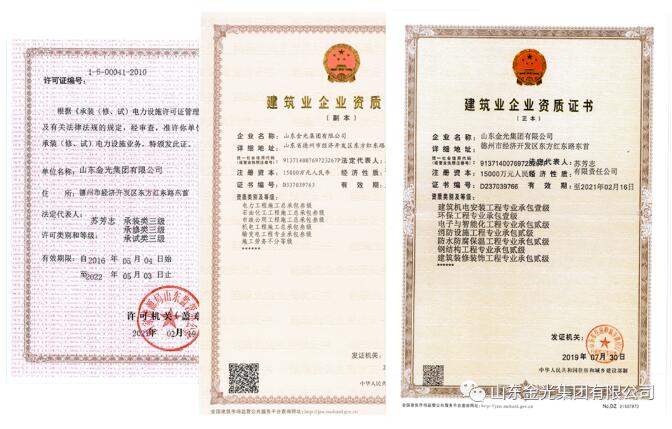 许可证编号:
1-6-00041-2010
根据《承装（修、试）电力设施许可证管理
及有关法律法规的规定，经审查，准许你单位
承装（修、试）电力设施业务，特颁发此证。
单位名称: 山东金光集团有限公司
住 所: 德州市经济开发区东方红东路东首
法定代表人: 苏芳志 承装类三级
许可类别和等级: 承修类三级
承试类三级
有效期限: 自2016 年 05 月 04 日始
至2022 年 05 月 03 日止
许可机关
建筑业企业资质
(副本)
企业名称: 山东金光集团有限公司
详细地址: 山东省德州市经济开发区东方红东路
法定代表人:
注册资本: 15000万元人民币 经济性质:
证书编号: D337039763 有效期:
资质类别及等级:
电力工程施工总承包叁级
石油化工工程施工总承包叁级
市政公用工程施工总承包叁级
机电工程施工总承包叁级
输变电工程专业承包叁级
施工劳务不分等级
******
发证机关:
全国建筑市场监管公共服务平台查询网址:
建筑业企业资质证书
(正本)
企业名称: 山东金光集团有限公司
详细地址: 德州市经济开发区东方红东路东首
法定代表人: 苏芳志
注册资本: 15000万元人民币 经济性质: 有限责任公司
证书编号: D237039766 有效期: 至2021年02月16日
资质类别及等级:
建筑机电安装工程专业承包壹级
环保工程专业承包壹级
电子与智能化工程专业承包贰级
消防设施工程专业承包贰级
防水防腐保温工程专业承包贰级
钢结构工程专业承包贰级
建筑装修装饰工程专业承包贰级
******
发证机关:
2019年07月30日
中华人民共和国住房和城乡建设部制
全国建筑市场监管公共服务平台查询网址:
No.DZ 21507872
山东金光集团有限公司